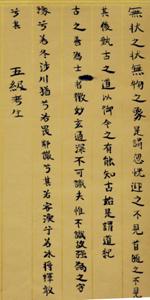 無狀之狀無物之象是謂忽恍迎之不見首隨之不見
其後執古之道以御今之有能知古始是謂道紀
古之善為士者微妙玄通深不可識夫惟不識故強為之容
豫兮若冬涉川猶兮若畏四鄰儼兮其若客渙兮若冰將釋敦
兮其 五級考生